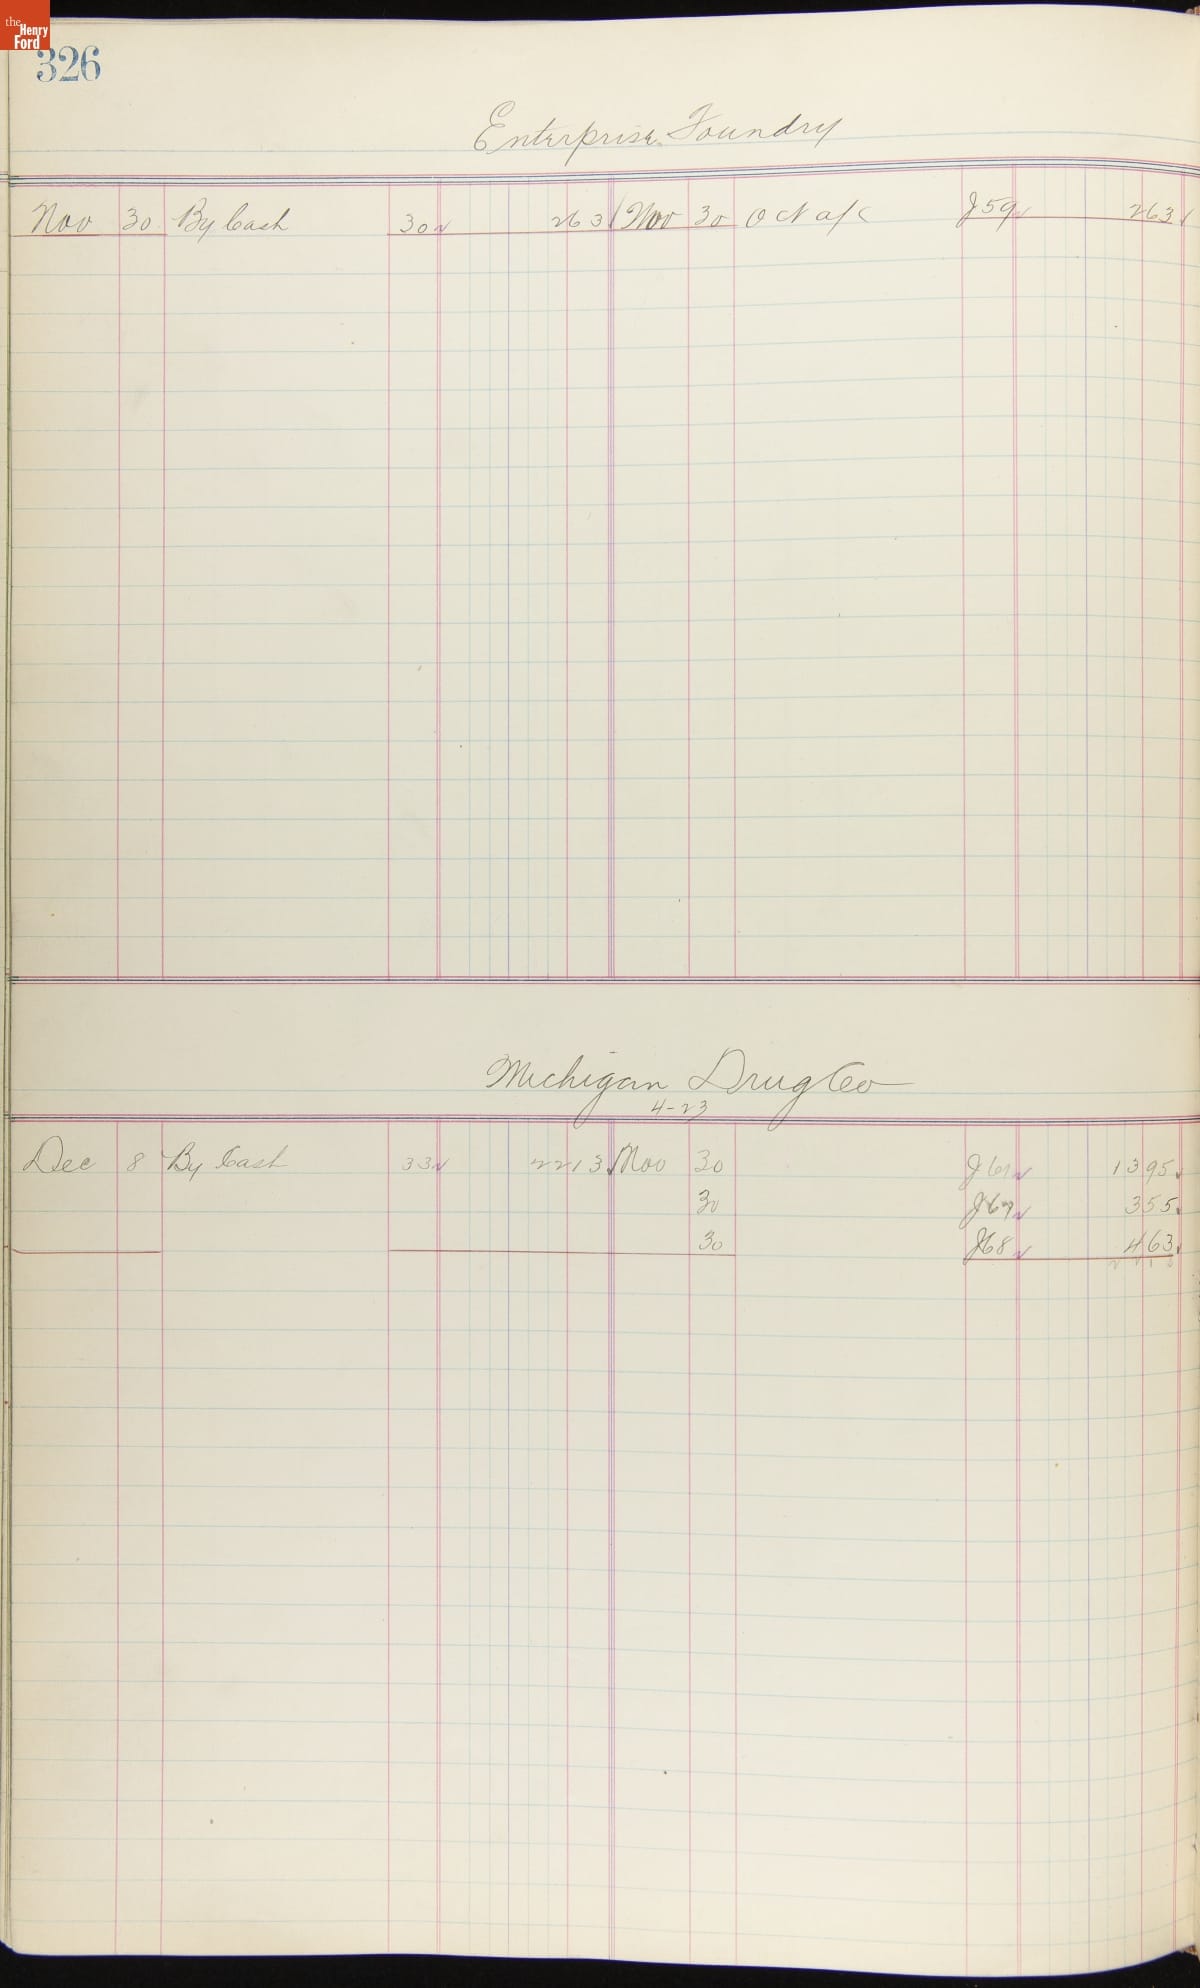 the Henry Ford
326
Enterprise Foundry
Nov 30 By Cash 30 263 Nov 30 Oct a/c J59 263
Michigan Drug Co
4-23
Dec 8 By Cash 33 2213 Nov 30 J61 1395
30 J67 355
30 J68 463
2213